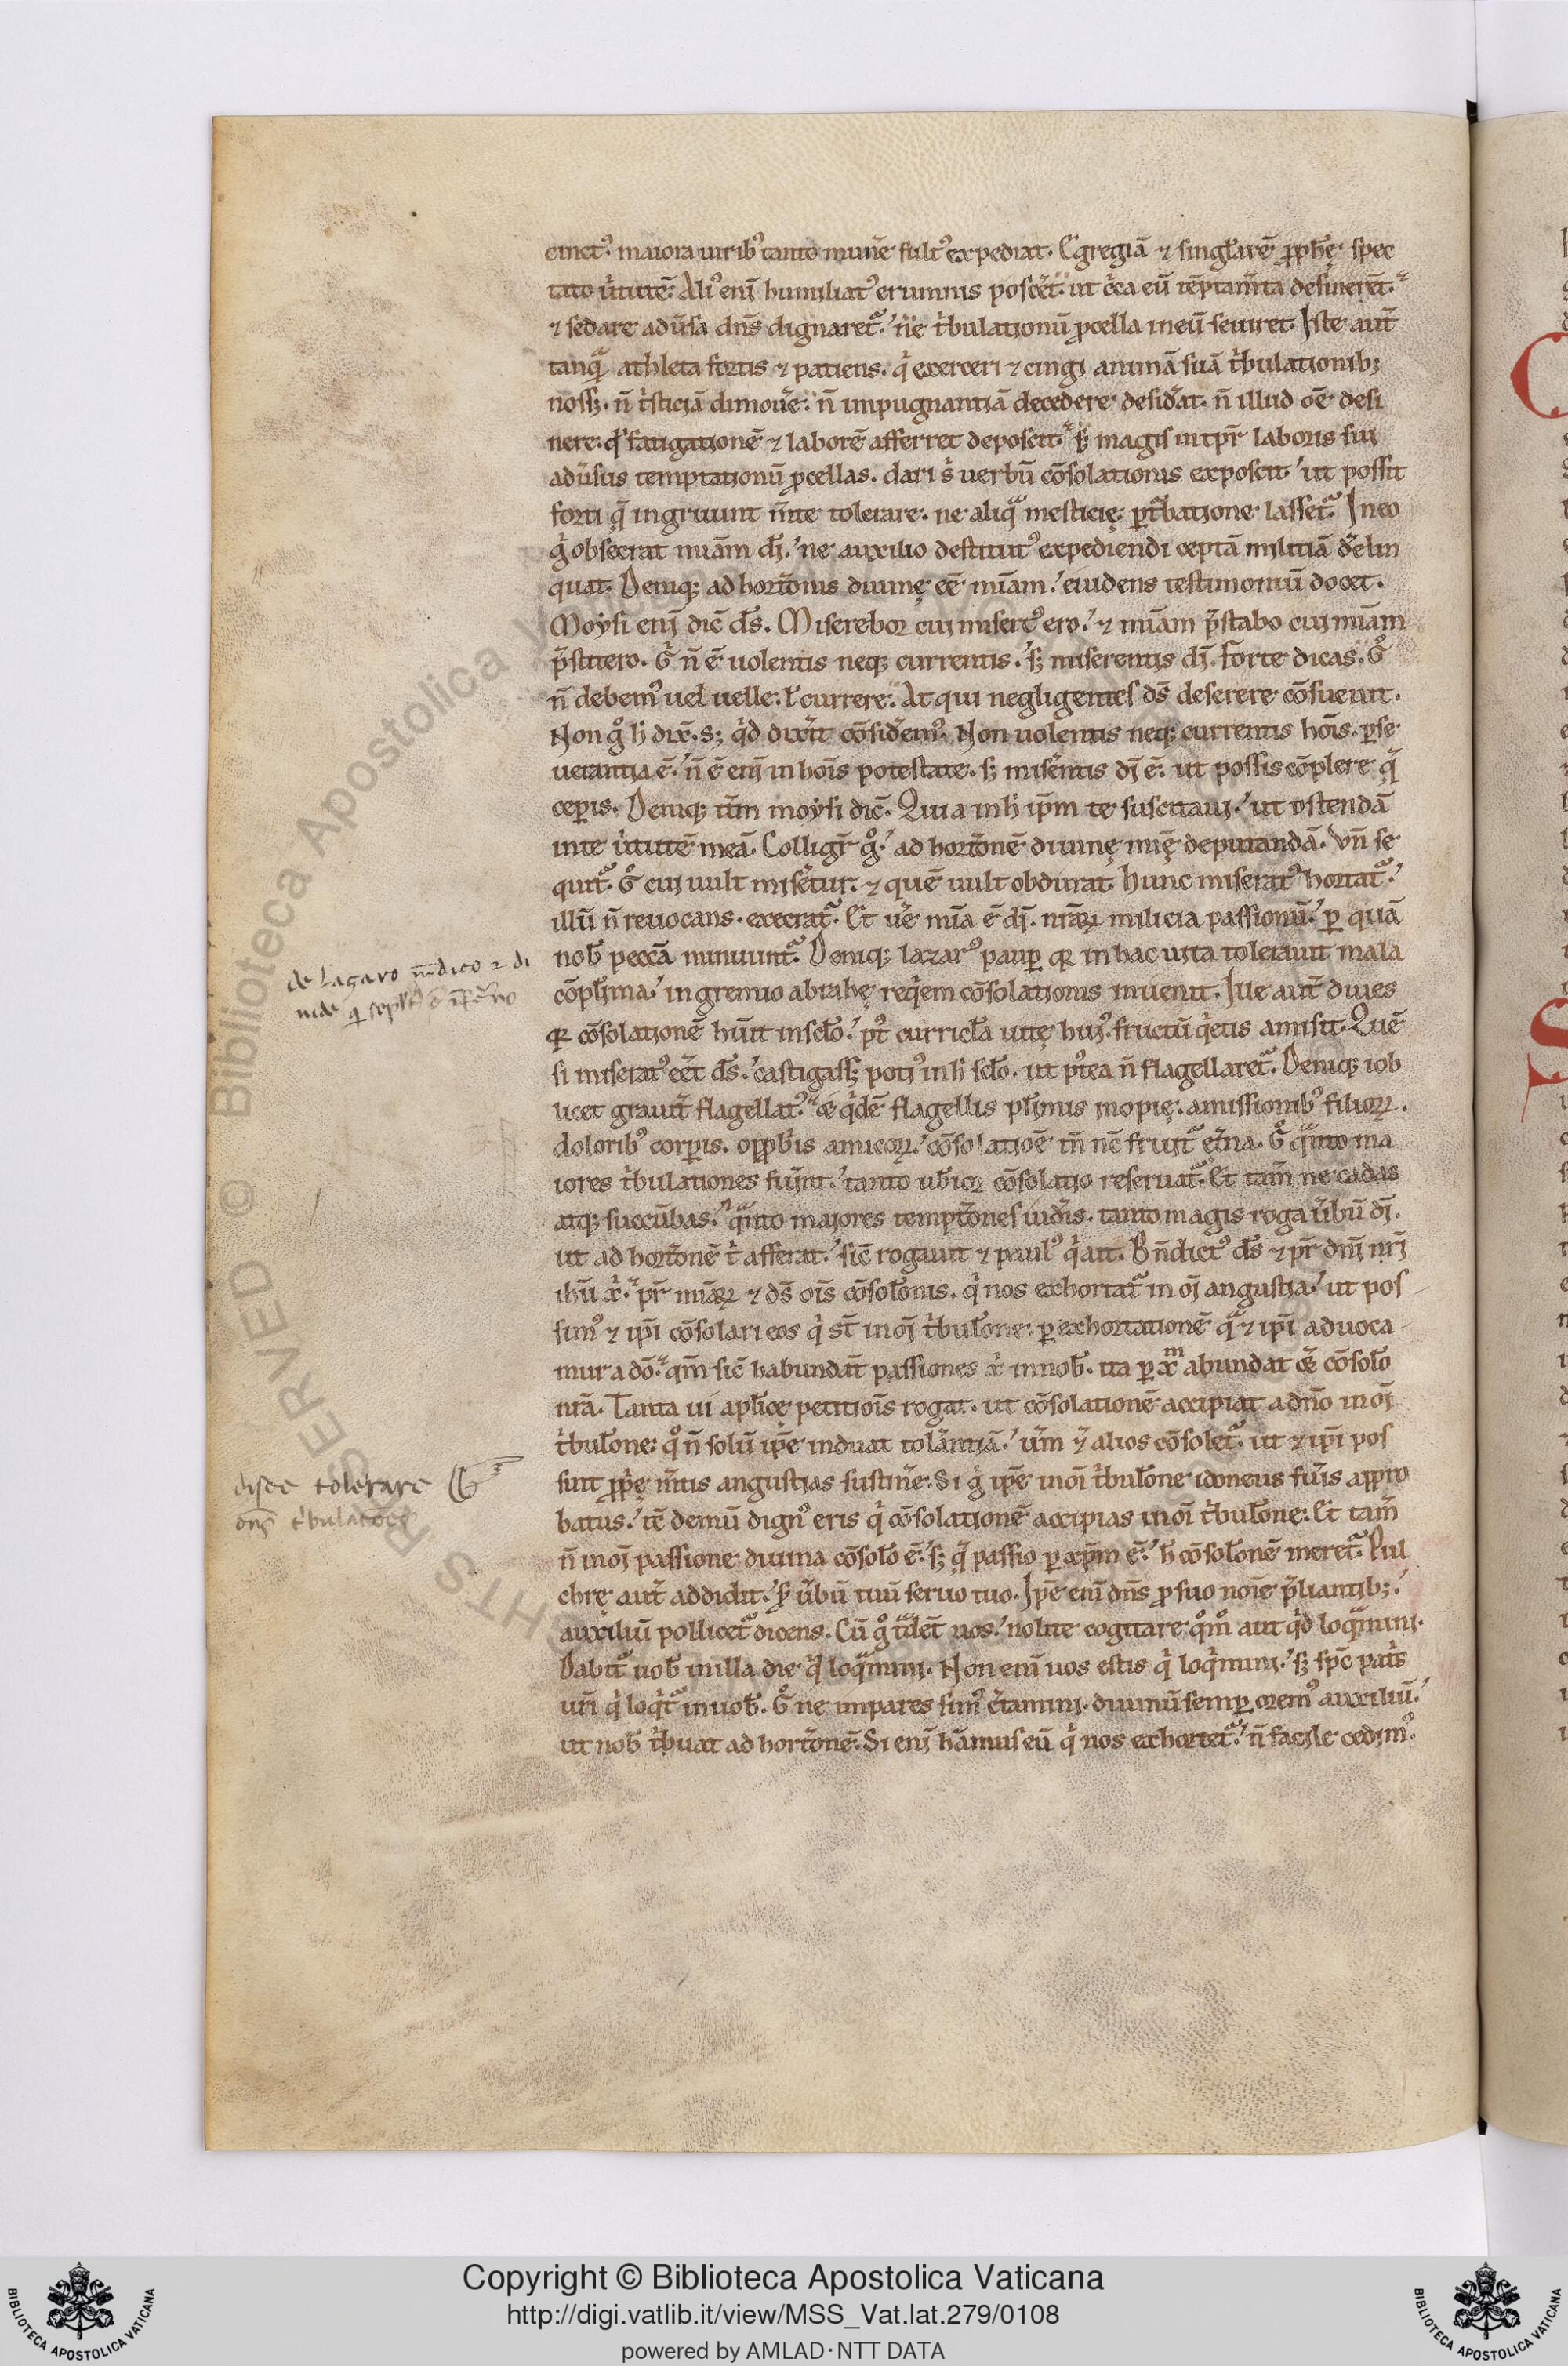 cinctꝰ maiora uiribꝰ tanto munẽ fultꝰ expediat. Egregiã ⁊ singłarẽ ꝓph̃ę spec
tato uͥtutẽ. Aliꝰ eni᷑ humiliatꝰ erumnis posc̃et. ut cͥca eũ tẽptam̃ta desinerẽt.
⁊ sedare adũsa dñs dignaretᷣ. ne tͥbulationũ ꝓcella ineũ seuiret. Iste aut̃
tanqᷓ athleta fortis ⁊ patiens. qͥ exerceri ⁊ cingi animã suã tͥbulationib;
noss;. ñ tͥsticiã dimoue᷑. ñ impugnantiã decedere desid̃at. ñ illud om̃e desi
nere. qd̾ fatigationẽ ⁊ laborẽ afferret deposcit. s; magis int̾pr̃ laboris sui
adũsus temptationũ ꝓcellas. dari sͥ uerbũ cõsolationis exposcit. ut possit
forti q̃ ingruunt m̃te tolerare. ne aliqᷓ mesticię ꝑt̾batione lassetᷣ. Ineo
gͥ obsecrat miãm di᷑. ne auxilio destitutꝰ expediendi ceptã militiã d̾elin
quat. Deniq; ad hortõnis diuinę ee᷑ miãm. euidens testimoniũ docet.
Moysi eni᷑ dic̃ ds̃. Miserebor cui misertꝰ ero. ⁊ miãm p̃stabo cui miãm
p̃stitero. Gͥ ñ ẽ uolentis neq; currentis. s; miserentis di᷑. Forte dicas. Gͦ
ñ debemꝰ uel uelle. ł currere. At qui negligentes ds̃ deserere cõsueuit.
Non gͦ h̾ dix̃. s; qͥd dixit̃ cõsid̃emꝰ. Non uolentis neq; currentis hoĩs. ꝑse
uerantia ẽ. ñ ẽ eni᷑ in hoĩs potestate. s; mis̃entis di᷑ ẽ. ut possis cõplere q̃
ceꝑis. Deniq; it̃m moysi dic̃. Quia inh̾ ip̃m te suscitaui. ut ostendã
inte uͥtutẽ meã. Colligit̃ gͦ. ad hortõnẽ diuinę mię̃ deputandã. Vñ se
quitᷣ. Gͦ cui uult mis̃etur. ⁊ quẽ uult obdurat. Hunc miseratꝰ hortatᷣ.
illũ ñ reuocans. execratᷣ. Et ue᷑ mĩa ẽ di᷑. nr̃aꝝ milicia passionũ. ꝑ quã
nob̾ peccã minuuntᷣ. Deniq; lazarꝰ pauꝑ qr̃ in hac uita tolerauit mala
cõpłima. in gremio abrahę req̃em cõsolationis inuenit. Iue aut̃ diues
qr̃ cõsolationẽ hũit inscło. pt̾ curricła uitę huiꝰ. fructũ qͥetis amisit. Quẽ
si miseratꝰ ee᷑t ds̃. castigass; potiꝰ inh̾ scło. ut pt̾ea ñ flagellaretᷣ. Deniq; iob
licet grauit̃ flagellatꝰ. ẽ qͥdẽ flagellis płimis inopię. amissionibꝰ filioꝝ.
doloribꝰ corꝑis. opꝓbriis amicoꝝ. cõsolatioẽ tñ nc̃ fruitᷣ et̃na. Gͦ qᷓnto ma
iores tͥbulationes fu᷑int. tanto ub̾ior cõsolatio reseruatᷣ. Et tam̃ ne cadas
atq; succũbas. qᷓnto maiores temptõnes uid̾is. tanto magis roga ũbũ di᷑.
ut ad hortõnẽ tͥ afferat. sic̃ rogauit ⁊ paulꝰ qͥ ait. Bñdictꝰ ds̃ ⁊ pr̃ dñi nr̃i
ihũ xͥ. pr̃ miãꝝ ⁊ ds̃ ois̃ cõsołonis. qͥ nos exhortatᷣ in oi᷑ angustia. ut pos
simꝰ ⁊ ip̃i cõsolari eos qͥ st̃ in oi᷑ tͥbułone. ꝑ exhortationẽ qᷓ ⁊ ip̃i aduoca
mur a dõ. qm̃ sic̃ habundãt passiones xͥ innob̾. ita ꝑ xm̃ abundat &̃ cõsoło
nr̃a. Tanta ui apłice petitiois̃ rogat. ut cõsolationẽ accipiat a dño in oi᷑
tͥbułone. qͦ ñ solũ ip̃e induat tol̃antiã. ue᷑m ⁊̃ alios cõsoletᷣ. ut ⁊ ip̃i pos
sint ꝓp̾ę m̃tis angustias sustine᷑. Si gͥ ip̃e in oi᷑ tͥbułone idoneus fu᷑is appro
batus. tc̃ demũ dignꝰ eris qͥ cõsolationẽ accipias in oi᷑ tͥbułone. Et tam̃
ñ in oi᷑ passione diuina cõsoło ẽ. s; q̃ passio ꝑ xp̃m ẽ. h̾ cõsołonẽ meretᷣ. Pul
chrę aut̃ addidit. s; ũbũ tuũ seruo tuo. Ip̃e eni᷑ dñs ꝓ suo noĩe p̃liantib;.
auxiliũ pollicetᷣ dicens. Cũ gͦ tᷓdẽt uos. nolite cogitare qͦmͦ aut qͥd loqᷓmini.
Dabitᷣ uob̾ in illa die qͥd loqᷓmini. Non eni᷑ uos estis qͥ loqͥmini. s; sp̃c patͥs
ur̃i qͥ loqͥtᷣ in uob̾. Gͦ ne impares simꝰ c̾tamini. diuinũ semꝑ oremꝰ auxiliũ.
ut nob̾ tͥbuat ad hortõnẽ. Si eni᷑ hãmus eũ qͥ nos exhortetᷣ. ñ facile cedimꝰ.
de Lazaro m̃dico ⁊ di
disce tolerare
om̃s tͥbulatões
RIGHTS RESERVED © Biblioteca Apostolica
Copyright © Biblioteca Apostolica Vaticana
http://digi.vatlib.it/view/MSS_Vat.lat.279/0108
powered by AMLAD·NTT DATA
BIBLIOTECA APOSTOLICA VATICANA
BIBLIOTECA APOSTOLICA VATICANA